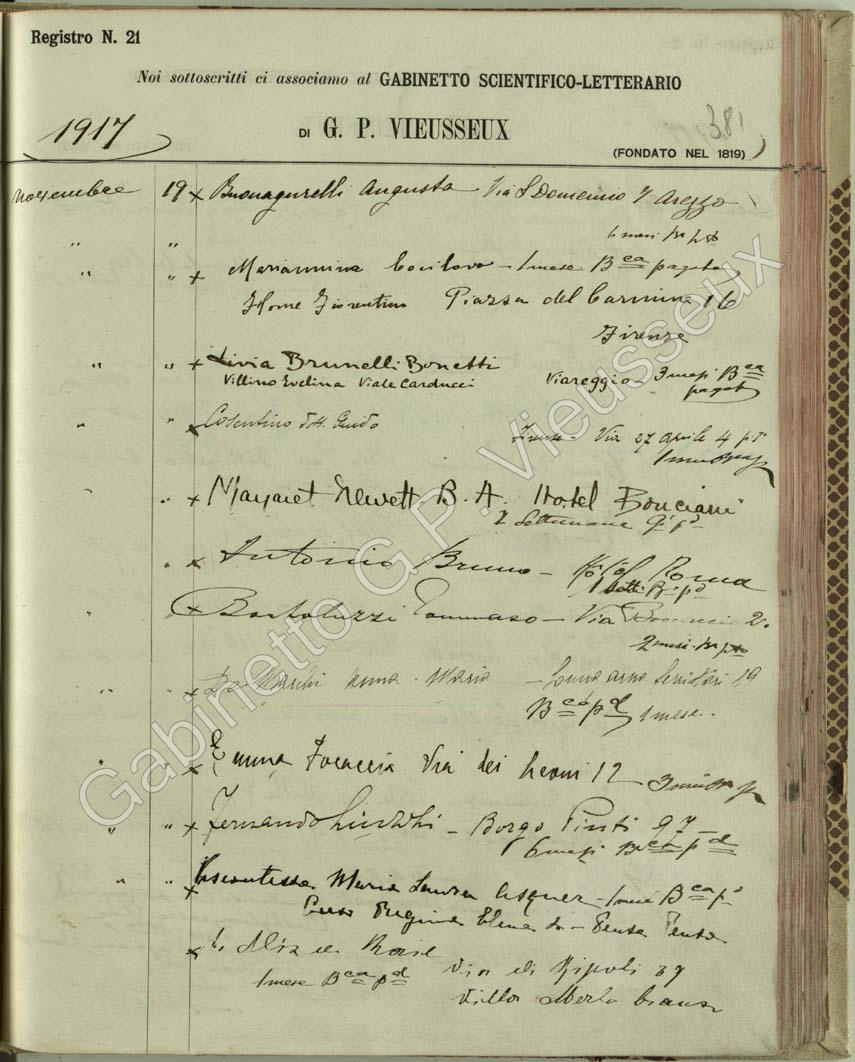 Registro N. 21
Noi sottoscritti ci associamo al GABINETTO SCIENTIFICO-LETTERARIO
1917
DI G. P. VIEUSSEUX
381
(FONDATO NEL 1819)
novembre 19 x Buonagurelli Augusta Via S Domenico 7 Arezzo
6 mesi
" "
" " x Mariannina - 1 mese B ca pagato
Home Fiorentino Piazza del Carmine 16
Firenze
" " x Livia Brunelli Bonetti
Villino Evelina Viale Carducci Viareggio - 3 mesi B ca
pagato
" " x Cosentino dott. Guido
Firenze - Via 27 aprile 4
1 mese
" x Margaret Newett B. A. Hotel Bonciani
2 Settimane
" x Antonio Bruno - Hôtel Roma
1 sett.
" x Bartoluzzi Tommaso - Via 2.
2 mesi
" " x De Marchi Anna Maria - Lungarno Serristori 19
B ca p d 1 mese.
" " x Emma Focaccia Via dei Leoni 12
3 mesi
" " x Fernando - Borgo Pinti 97 -
6 mesi B ca p d
" " x Viscontessa Maria Laura Asquer - 1 mese B ca p d
Corso Regina Elena
x
1 mese B ca p d Via di Ripoli 37
Villa Merlo bianco
Gabinetto G.P. Vieusseux